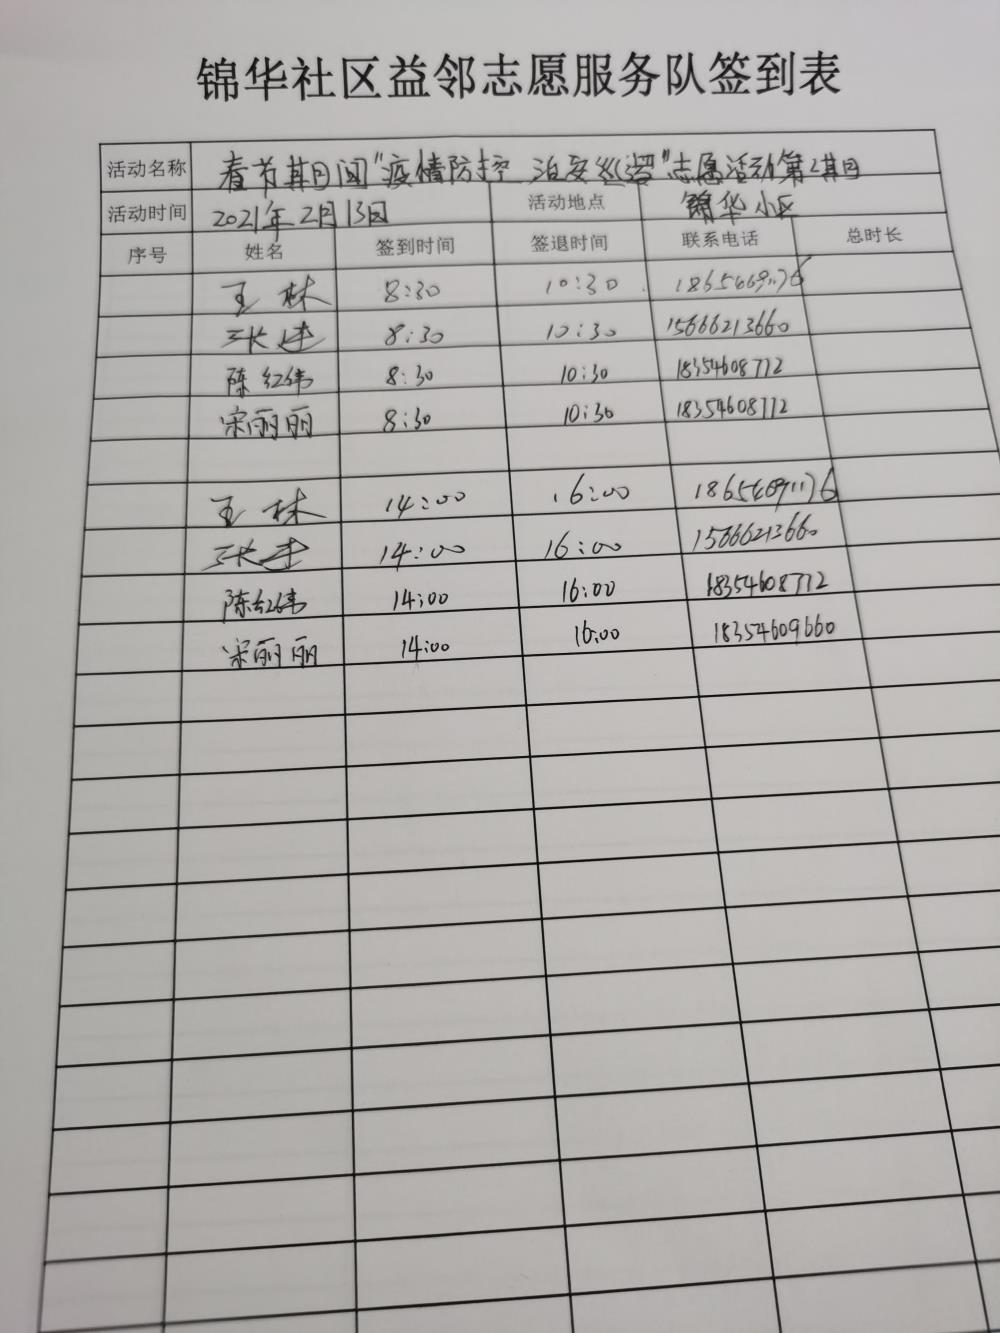 锦华社区益邻志愿服务队签到表
活动名称 春节期间“疫情防控 治安巡逻”志愿活动第2期
活动时间 2021年2月13日 活动地点 锦华小区
序号 姓名 签到时间 签退时间 联系电话 总时长
王林 8:30 10:30 18654691176
张建 8:30 10:30 15666213660
陈红伟 8:30 10:30 18354608772
宋丽丽 8:30 10:30 18354608772
王林 14:00 16:00 18654691176
张建 14:00 16:00 15666213660
陈红伟 14:00 16:00 18354608772
宋丽丽 14:00 16:00 18354609660